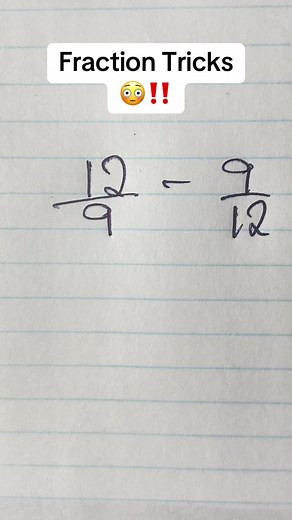 Fraction Tricks
😳‼️
12/9 - 9/12